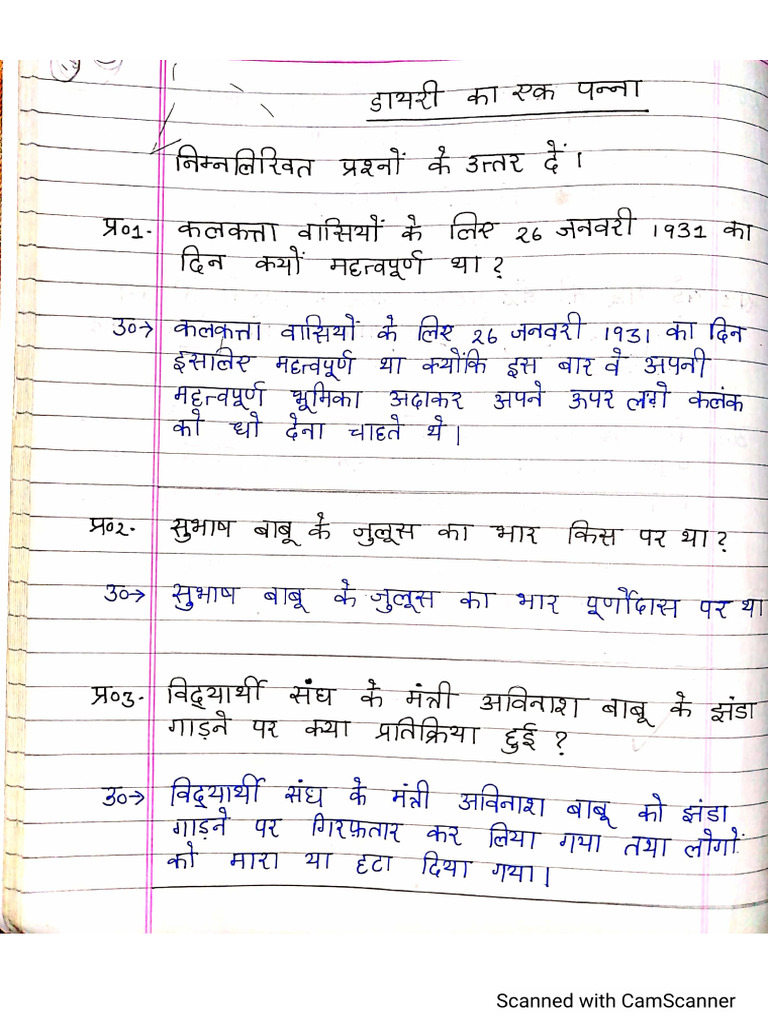 डायरी का एक पन्ना
निम्नलिखित प्रश्नों के उत्तर दें।
प्र०1- कलकत्ता वासियों के लिए 26 जनवरी 1931 का
दिन क्यों महत्वपूर्ण था?
उ०→ कलकत्ता वासियों के लिए 26 जनवरी 1931 का दिन
इसलिए महत्वपूर्ण था क्योंकि इस बार वे अपनी
महत्वपूर्ण भूमिका अदाकर अपने ऊपर लगे कलंक
को धो देना चाहते थे।
प्र०2- सुभाष बाबू के जुलूस का भार किस पर था?
उ०→ सुभाष बाबू के जुलूस का भार पूर्णोदास पर था
प्र०3- विद्यार्थी संघ के मंत्री अविनाश बाबू के झंडा
गाड़ने पर क्या प्रतिक्रिया हुई?
उ०→ विद्यार्थी संघ के मंत्री अविनाश बाबू को झंडा
गाड़ने पर गिरफ़तार कर लिया गया तथा लोगों
को मारा या हटा दिया गया।
Scanned with CamScanner